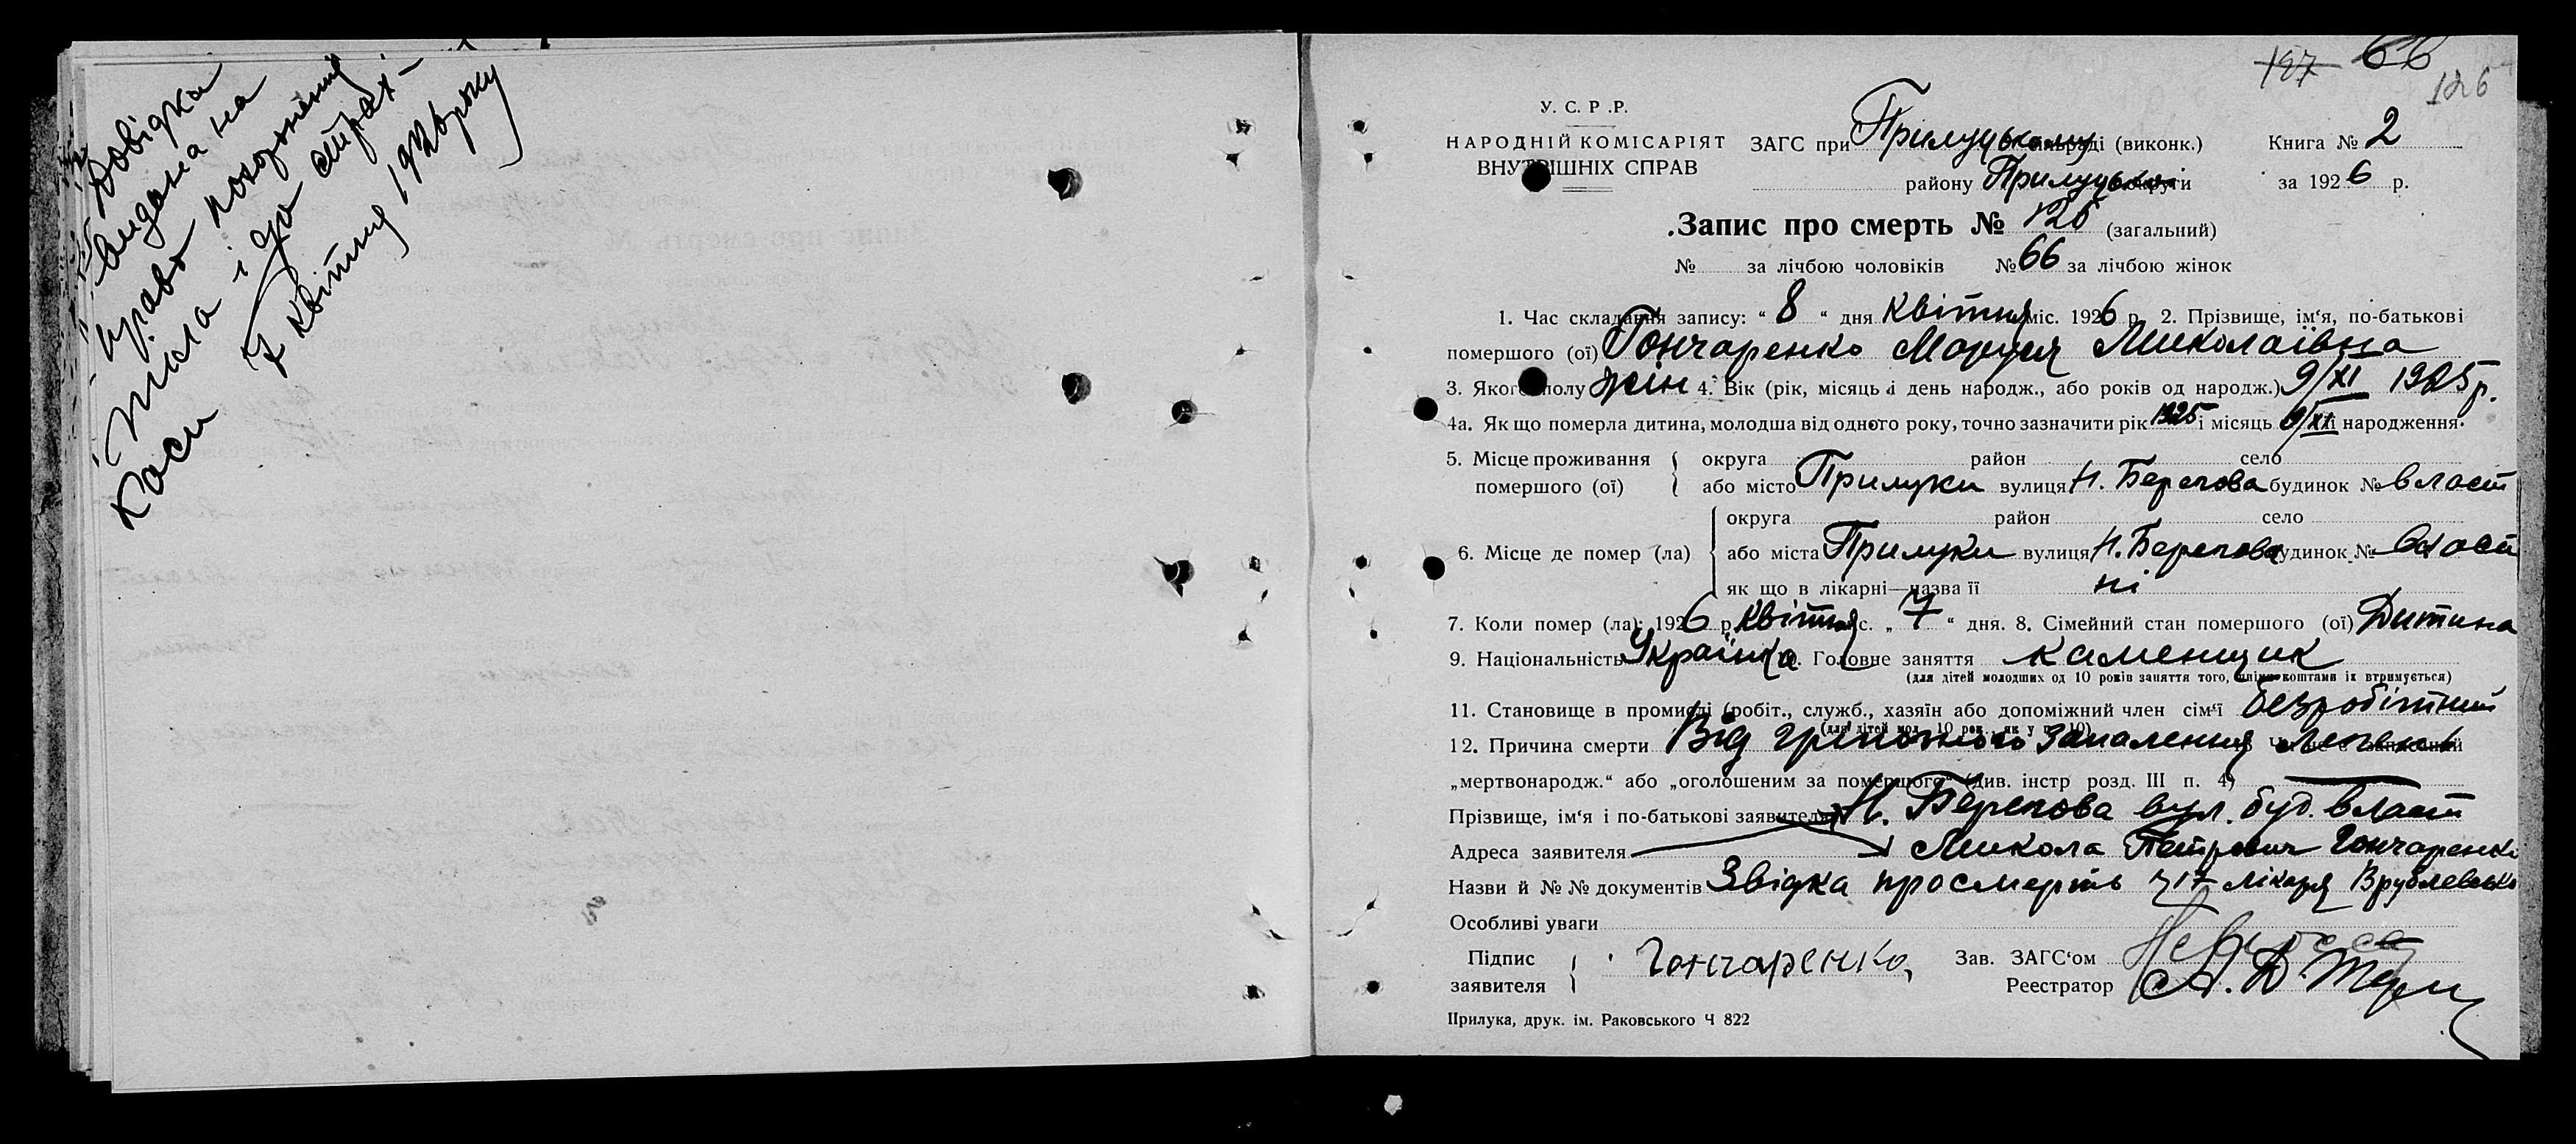 Довідка
видана на
право похоронення
тіла і до страх-
каси
7 Квітня 1926 року
127 66
126
У. С. Р. Р.
НАРОДНІЙ КОМІСАРІЯТ
ВНУТРІШНІХ СПРАВ
ЗАГС при Прилуцькому окрвідді (виконк.)
району Прилуцької округи
Книга № 2
за 1926 р.
Запис про смерть № 126 (загальний)
№ за лічбою чоловіків № 66 за лічбою жінок
1. Час складання запису: “ 8 “ дня Квітня міс. 1926 р. 2. Прізвище, ім‘я, по-батькові
помершого (ої) Гончаренко Маруся Миколаївна
3. Якого полу жін 4. Вік (рік, місяць і день народж., або років од народж.) 9/XI 1925 р.
4а. Як що померла дитина, молодша від одного року, точно зазначити рік 1925 і місяць 9/XI її народження.
5. Місце проживання помершого (ої) { округа район село
або місто Прилуки вулиця Н. Берегова будинок № власт
6. Місце де помер (ла) { округа район село
або міста Прилуки вулиця Н. Берегова будинок № власт
як що в лікарні—назва її ні
7. Коли помер (ла): 1926 р. Квітня міс. „ 7 “ дня. 8. Сімейний стан помершого (ої) Дитина
9. Національність Українка 10. Головне заняття каменщик
(для дітей молодших од 10 років заняття того, чиїми коштами їх втримується)
11. Становище в промислі (робіт., служб., хазяїн або допоміжний член сім‘ї безробітний
(для дітей мол. 10 рок., як у п. 10)
12. Причина смерти Від грипозного запалення легень
„мертвонародж.“ або „оголошеним за померщого“ (див. інстр розд. III п. 4)
Прізвище, ім‘я і по-батькові заявителя Н. Берегова вул. буд. власт
Адреса заявителя Микола Петрович Гончаренко
Назви й № № документів Звідка про смерть ч 17 лікаря Врублевсько
Особливі уваги
Підпис заявителя { Гончаренко Зав. ЗАГС‘ом
Реестратор
Прилука, друк. ім. Раковського Ч 822